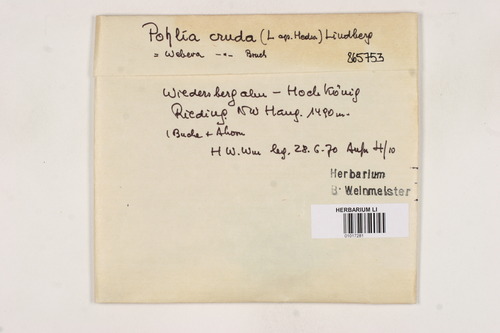 Pohlia cruda (L. ap. Hedw.) Lindberg
= Webera -"- Bruch
865753
Wiedersbergalm - Hochkönig
Rieding NW Hang. 1490m.
1 Buche + Ahorn
H W. Wm leg. 28.6.70 Aufn H/10
Herbarium
B. Weinmeister
HERBARIUM LI
01017281